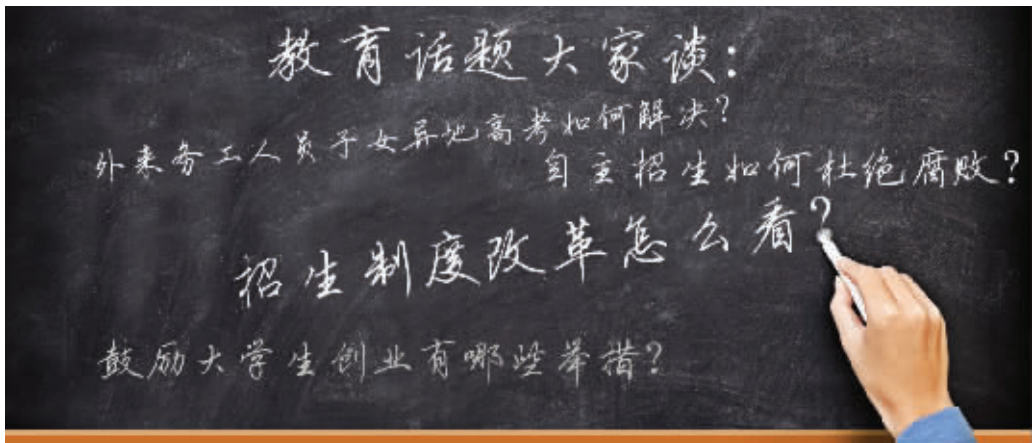 教育话题大家谈：
外来务工人员子女异地高考如何解决？
自主招生如何杜绝腐败？
招生制度改革怎么看？
鼓励大学生创业有哪些举措？